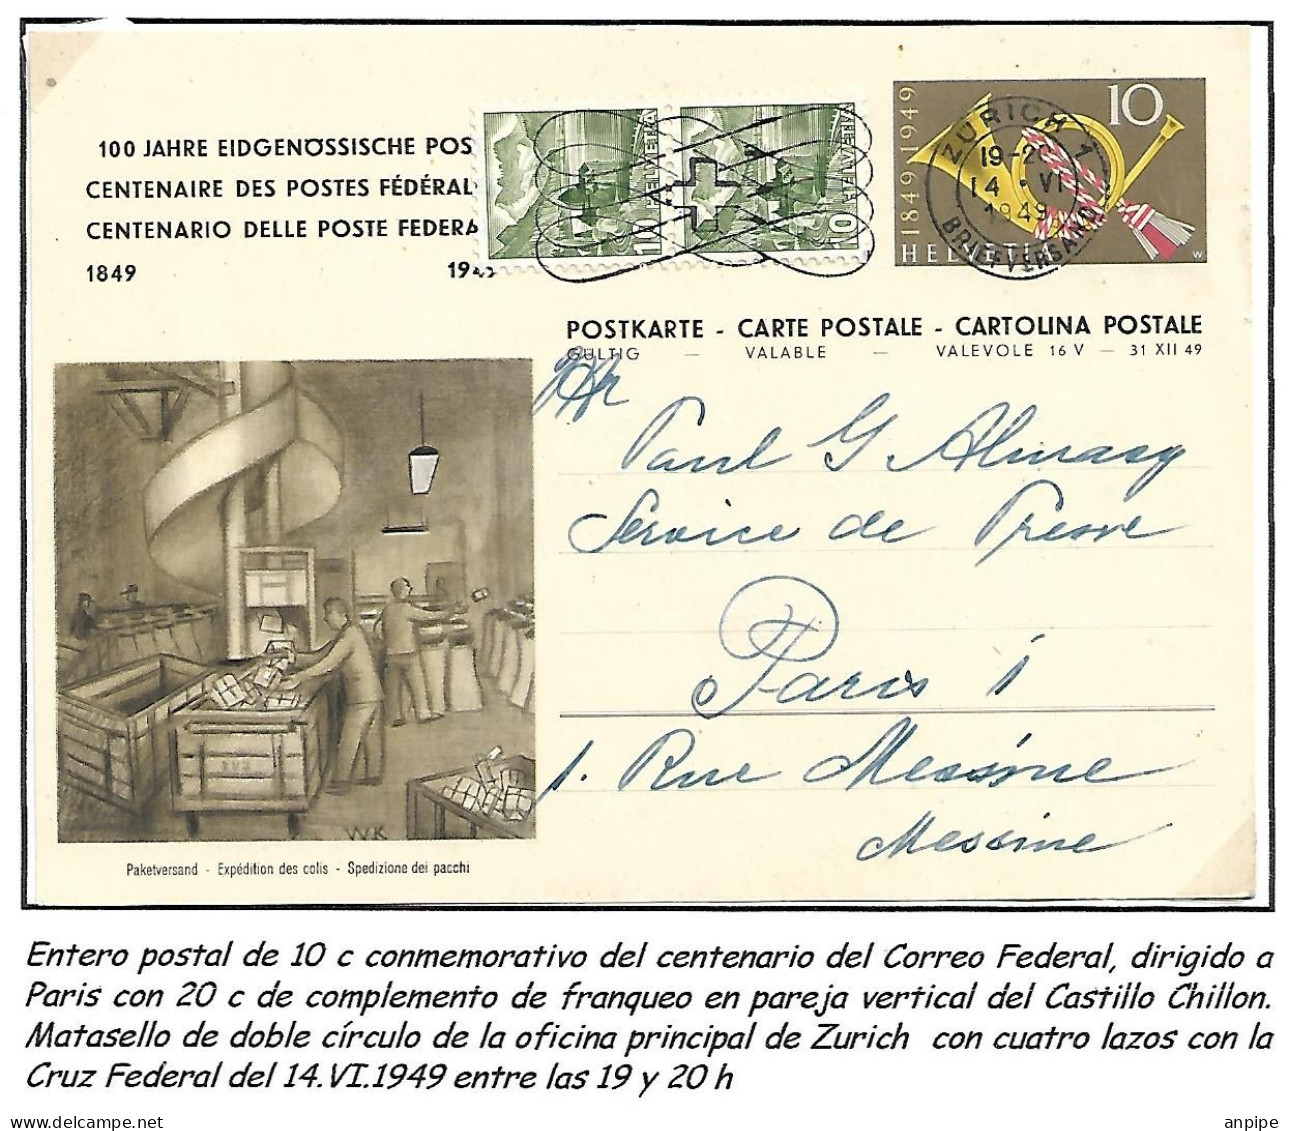 100 JAHRE EIDGENÖSSISCHE POS
CENTENAIRE DES POSTES FÉDÉRAL
CENTENARIO DELLE POSTE FEDERA
1849 19
HELVETIA
10
HELVETIA
10
1849 1949
10
HELVETIA
W
ZÜRICH 1
19-20
14·VI
1949
BRIEFVERSAND
POSTKARTE - CARTE POSTALE - CARTOLINA POSTALE
GÜLTIG — VALABLE — VALEVOLE 16 V — 31 XII 49
Paul G Almasy
Service de Presse
Paris 1
1. Rue Messine
Messine
WK
Paketversand - Expédition des colis - Spedizione dei pacchi
Entero postal de 10 c conmemorativo del centenario del Correo Federal, dirigido a
Paris con 20 c de complemento de franqueo en pareja vertical del Castillo Chillon.
Matasello de doble círculo de la oficina principal de Zurich con cuatro lazos con la
Cruz Federal del 14.VI.1949 entre las 19 y 20 h
www.delcampe.net
anpipe